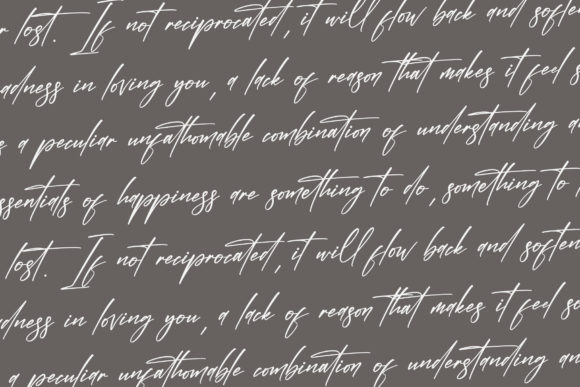 r lost. If not reciprocated, it will flow back and soften
adness in loving you, a lack of reason that makes it feel s
s a peculiar unfathomable combination of understanding a
ssentials of happiness are something to do, something to
lost. If not reciprocated, it will flow back and soften
adness in loving you, a lack of reason that makes it feel so
a peculiar unfathomable combination of understanding an